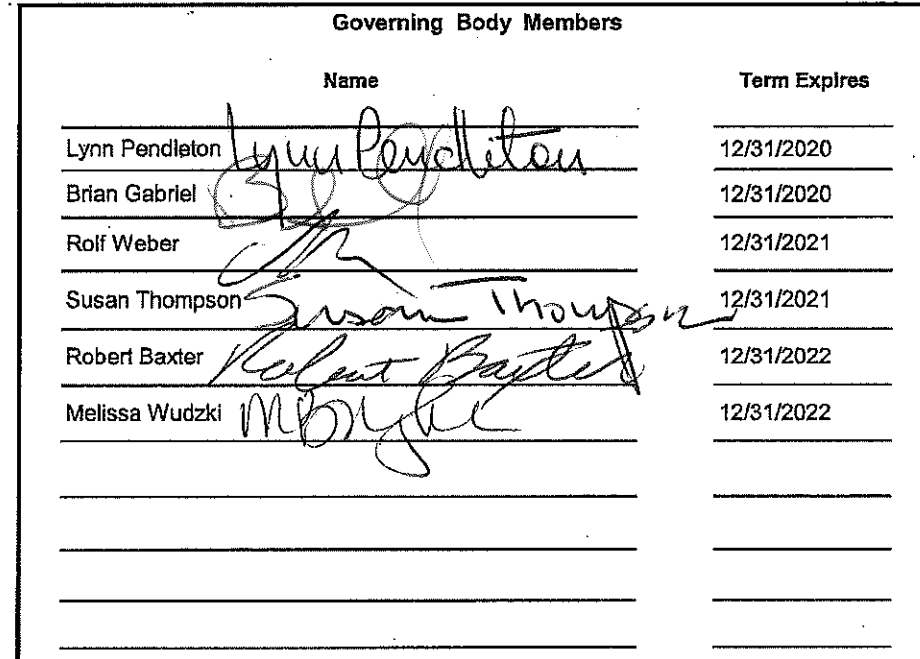 Governing Body Members
Name Term Expires
Lynn Pendleton Lynn Pendleton 12/31/2020
Brian Gabriel 12/31/2020
Rolf Weber 12/31/2021
Susan Thompson Susan Thompson 12/31/2021
Robert Baxter Robert Baxter 12/31/2022
Melissa Wudzki 12/31/2022